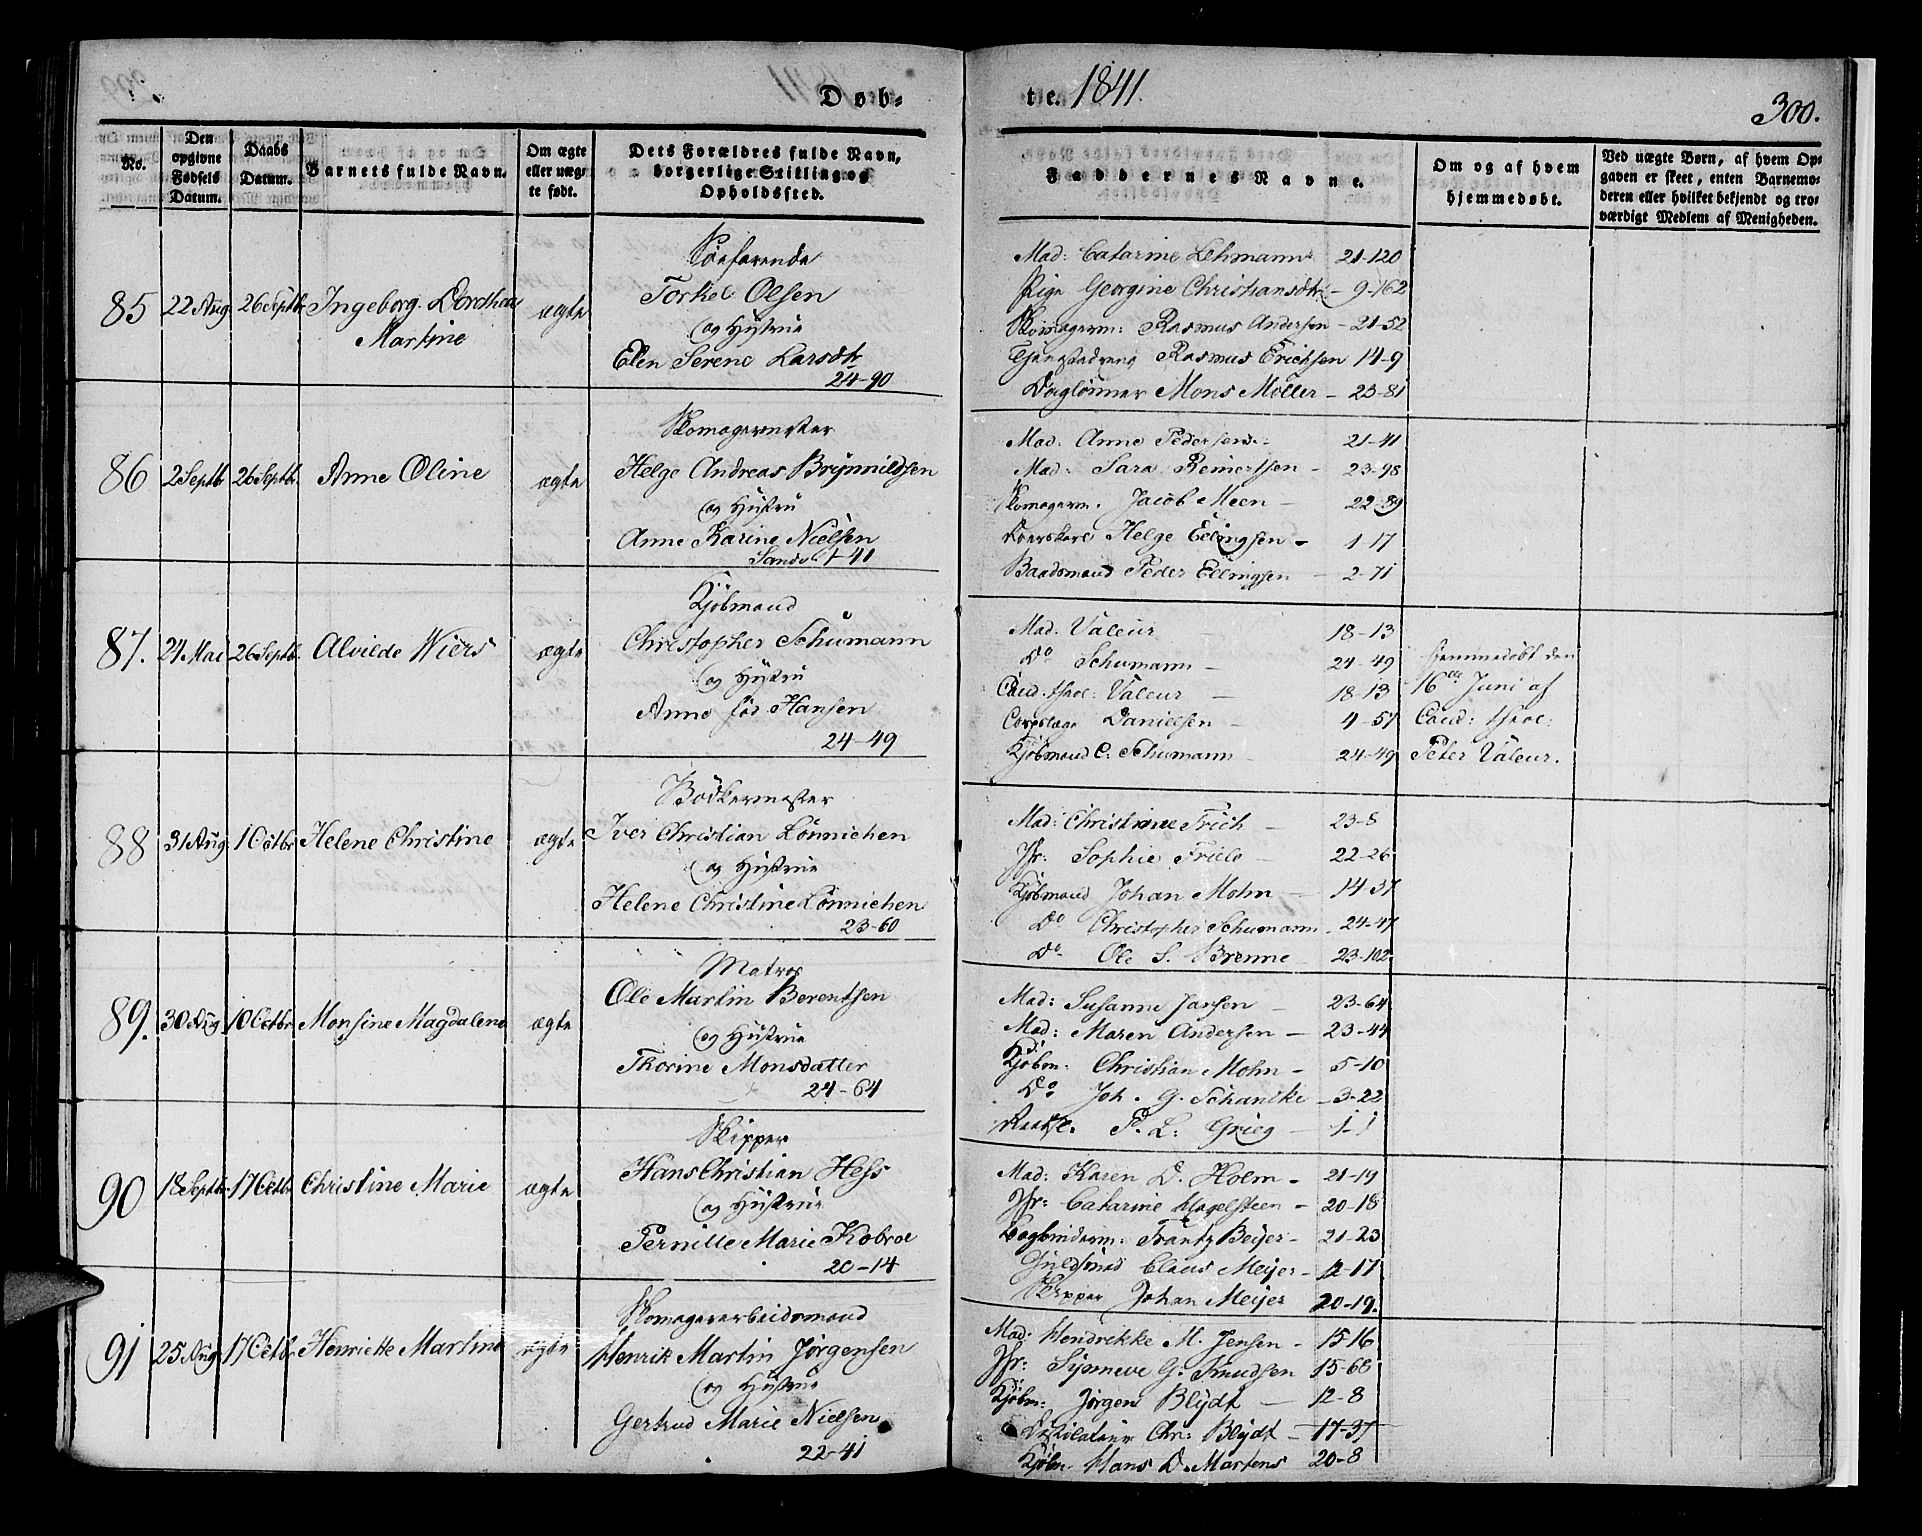 Døb-
te. 1841.
300.
No.
Den opgivne Fødsels Datum.
Daabs Datum.
Barnets fulde Navn.
Om ægte eller uægte født.
Dets Forældres fulde Navn, borgerlige Stilling og Opholdssted.
Faddernes Navne.
Om og af hvem hjemmedøbt.
Ved uægte Børn, af hvem Opgaven er skeet, enten Barnemoderen eller hvilket bekjendt og troværdigt Medlem af Menigheden.
85 22 Aug 26 Septbr Ingeborg Dordthea Martine ægte
Søefarende
Torkel Olsen
og Hustrue
Elen Serene Larsdtr
24-90
Mad: Catarine Lehmann 21-120
Pige Georgine Christiansdtr - 9-162
Skomagerm: Rasmus Andersen - 21-52
Rasmus Erichsen 14-9
Daglønner Mons Møller - 23-81
86 2 Septb 26 Septb. Anne Oline ægte
Skomagermester
Helge Andreas Brynnildsen
og Hustru
Anne Karine Nielsen
41
Mad: Anne Pedersen 21-41
Mad: Sara Reinertsen - 23-98
Skomagerm. Jacob Meen - 22-89
Helge Ellingsen - 1-17
Baadsmand Peder Ellingsen - 2-71
87. 24 Mai 26 Septb. Alvilde Wiers ægte
Kjøbmand
Christopher Schumann
og Hustru
Anne før Hansen
24-49
Mad: Valeur 18-13
Do Schumann - 24-49
Cand. theol: Valeur - 18-13
Corpslæge Danielsen - 4-57
Kjøbmand C: Schumann 24-49
hjemmedøbt den
16de Juni af
Cand: theol:
Peter Valeur.
88 31 Aug 10 Octbr Helene Christine ægte
Bødkermester
Iver Christian Lønnichen
og Hustrue
Helene Christine Lønnichen
23-60
Mad: Christine Frich - 23-8
Jfr: Sophie Friele - 22-26
Kjøbmand Johan Mohn - 14-37
Do Christopher Schumann. 24-47
Do Ole S. Brenne - 23-102
89. 30 Aug. 10 Octbr Monsine Magdalene ægte
Matros
Ole Martin Berentsen
og Hustrue
Thorine Monsdatter
24-64
Mad: Susanne Jansen - 23-64
Mad: Maren Andersen - 23-44
Kjøbm: Christian Mohn - 5-10
Do Joh. G. Schanche - 3-22
P. L: Grieg - 1-1
90 18 Septbr. 17 Octbr Christine Marie ægte
Skipper
Hans Christian Hess
og Hustrue
Pernille Marie Kobroe
20-14
Mad: Karen D. Holm - 21-19
Jfr: Catarine Magelsteen - 20-18
Bogbinderm: Frantz Beyer - 21-23
Guldsmed Claus Meijer - 12-17
Skipper Johan Meijer 20-19.
91 25 Aug 17 Octbr Henriette Martine ægte
Skomagerarbeidsmand
Henrik Martin Jørgensen
og Hustrue
Gertrud Marie Nielsen
22-41
Mad: Hendrikke M. Jensen - 15-16
Jfr: Synneve G. Knudsen 15-68
Kjøbm: Jørgen Blydt - 12-8
Destilateur Chr: Blydt - 17-37
Kjøbm. Hans D. Martens 20-8